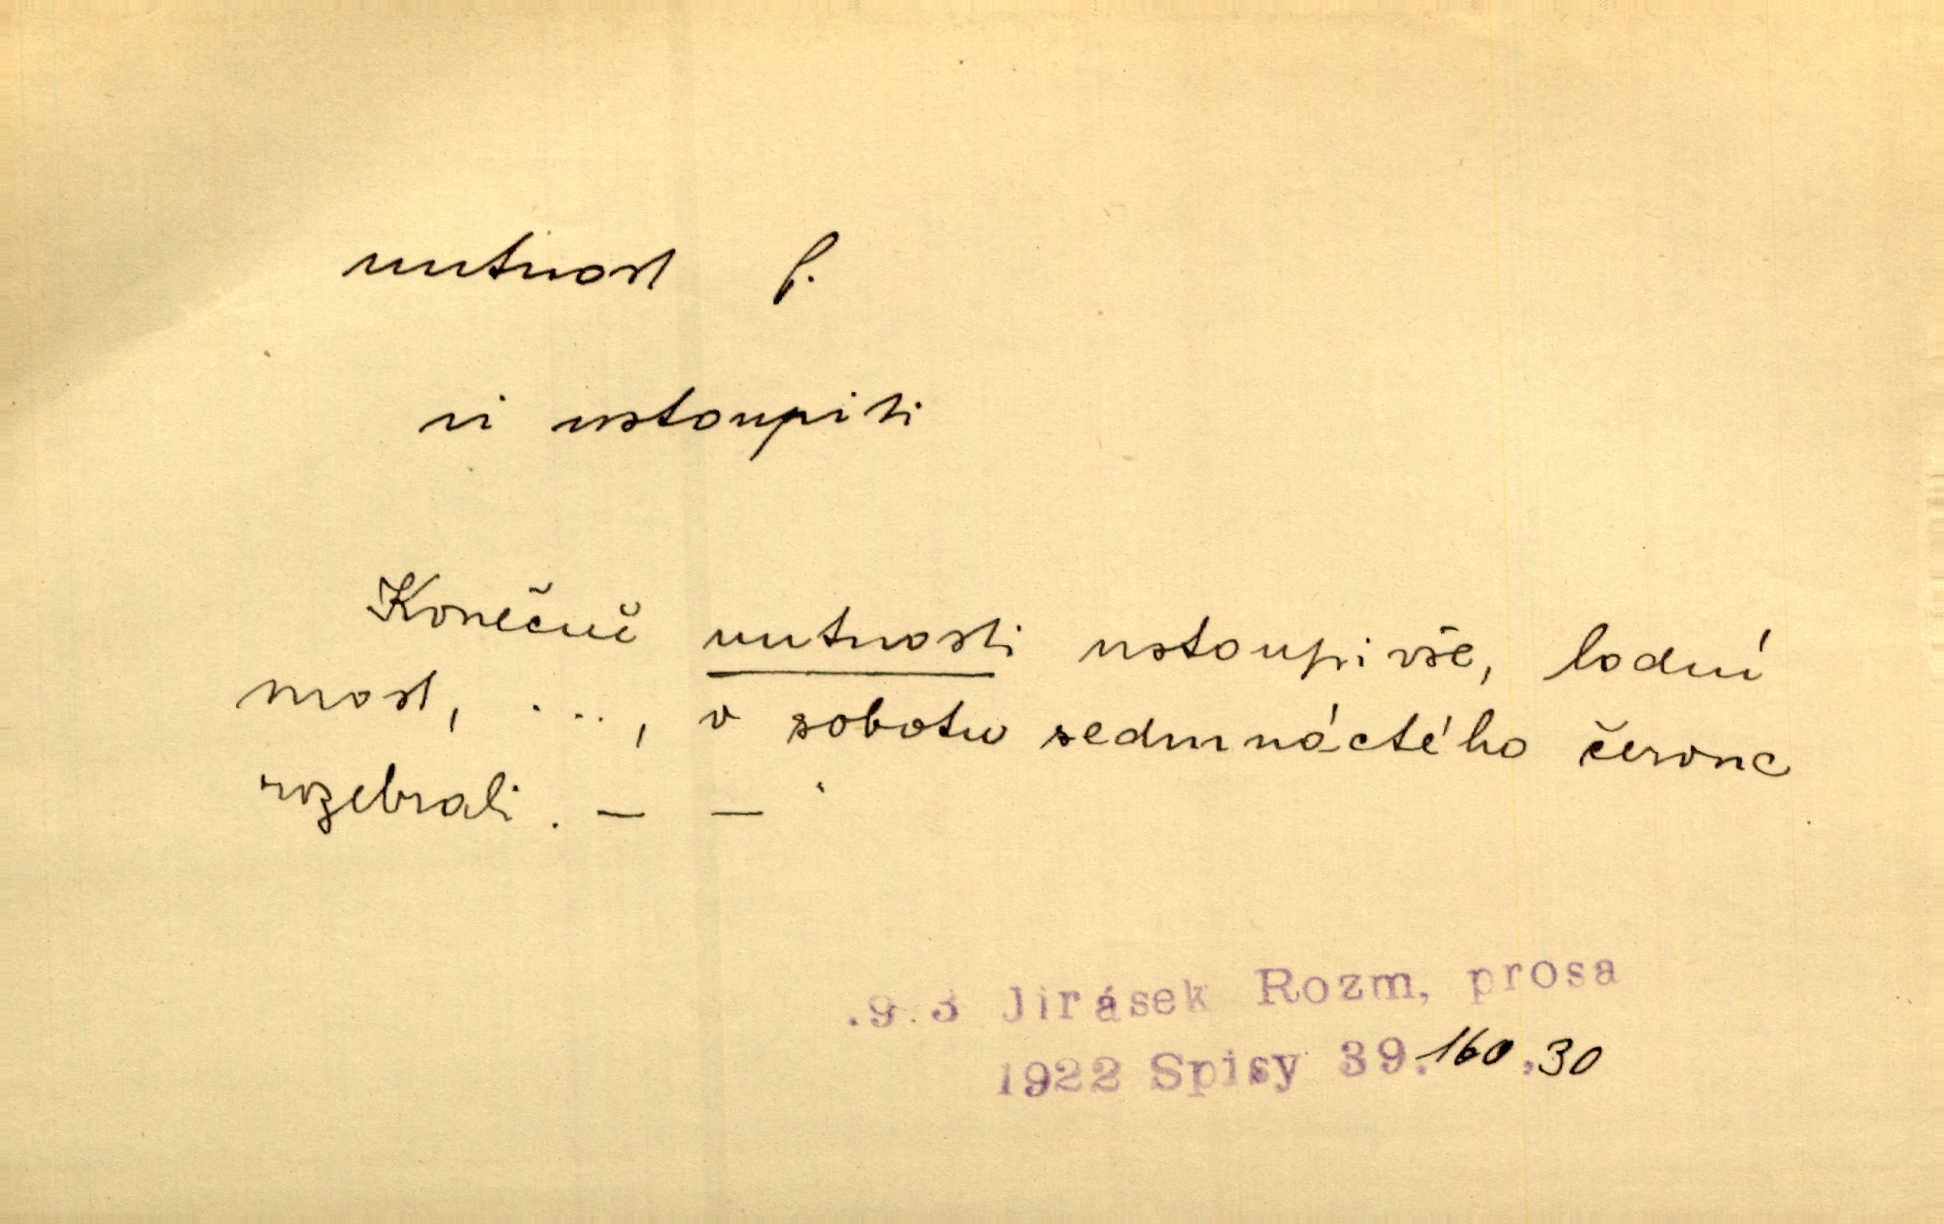 nutnost f.
ni ustoupiti
Konečně nutnosti ustoupivše, lodní
most, ..., v sobotu sedmnáctého června
rozebrali. — —
.9.3 Jirásek Rozm, prosa
1922 Spisy 39.160,30